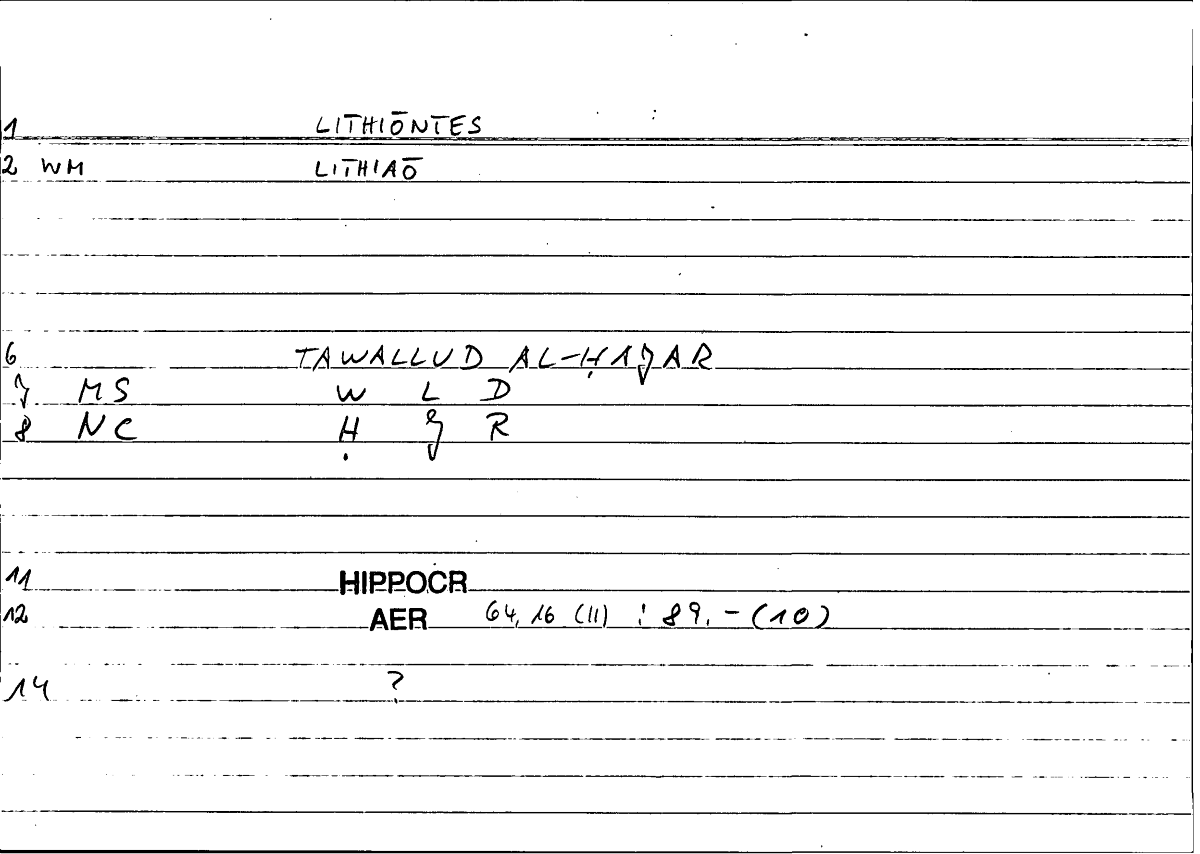 1 LITHIŌNTES
2 WM LITHIAŌ
6 TAWALLUD AL-ḤAǦAR
7 MS W L D
8 NC Ḥ Ǧ R
11 HIPPOCR
12 AER 64,16 (11) : 89,-(10)
14 ?